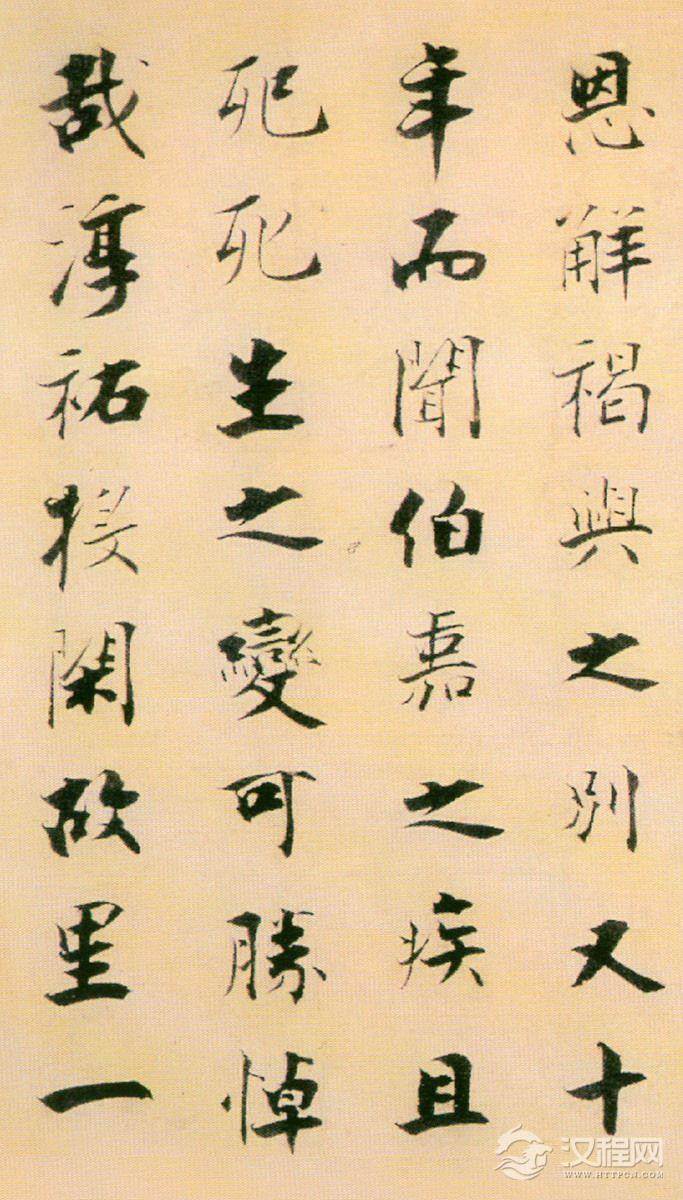 恩解褐與之別又十
年而聞伯嘉之疾且
死死生之變可勝悼
哉淳祐授閑故里一
汉程网
WWW.HTTPCN.COM